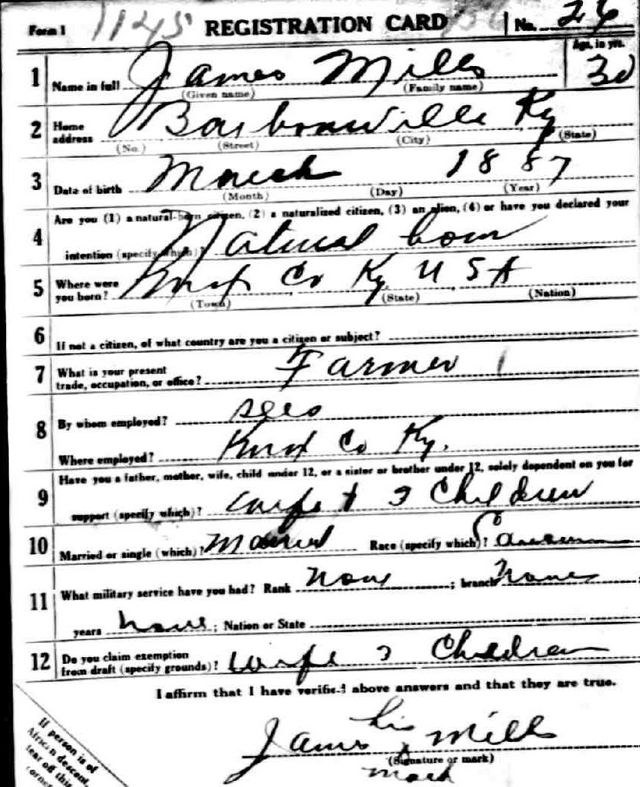 Form 1 1145 REGISTRATION CARD No. 26
Age, in yrs.
1 Name in full James Mills 30
(Given name) (Family name)
2 Home address Barbourville Ky
(No.) (Street) (City) (State)
3 Date of birth March 1887
(Month) (Day) (Year)
Are you (1) a natural-born citizen, (2) a naturalized citizen, (3) an alien, (4) or have you declared your
4 intention (specify which)? Natural born
5 Where were you born? Knox Co Ky U S A
(Town) (State) (Nation)
6 If not a citizen, of what country are you a citizen or subject?
7 What is your present trade, occupation, or office? Farmer
8 By whom employed?
Where employed? Knox Co Ky.
Have you a father, mother, wife, child under 12, or a sister or brother under 12, solely dependent on you for
9 support (specify which)? wife & 3 Children
10 Married or single (which)? Married Race (specify which)?
11 What military service have you had? Rank None ; branch None
years None ; Nation or State
12 Do you claim exemption from draft (specify grounds)? wife 3 Children
I affirm that I have verified above answers and that they are true.
his
James Mills
(Signature or mark)
mark
If person is of
African descent,
tear off this
corner